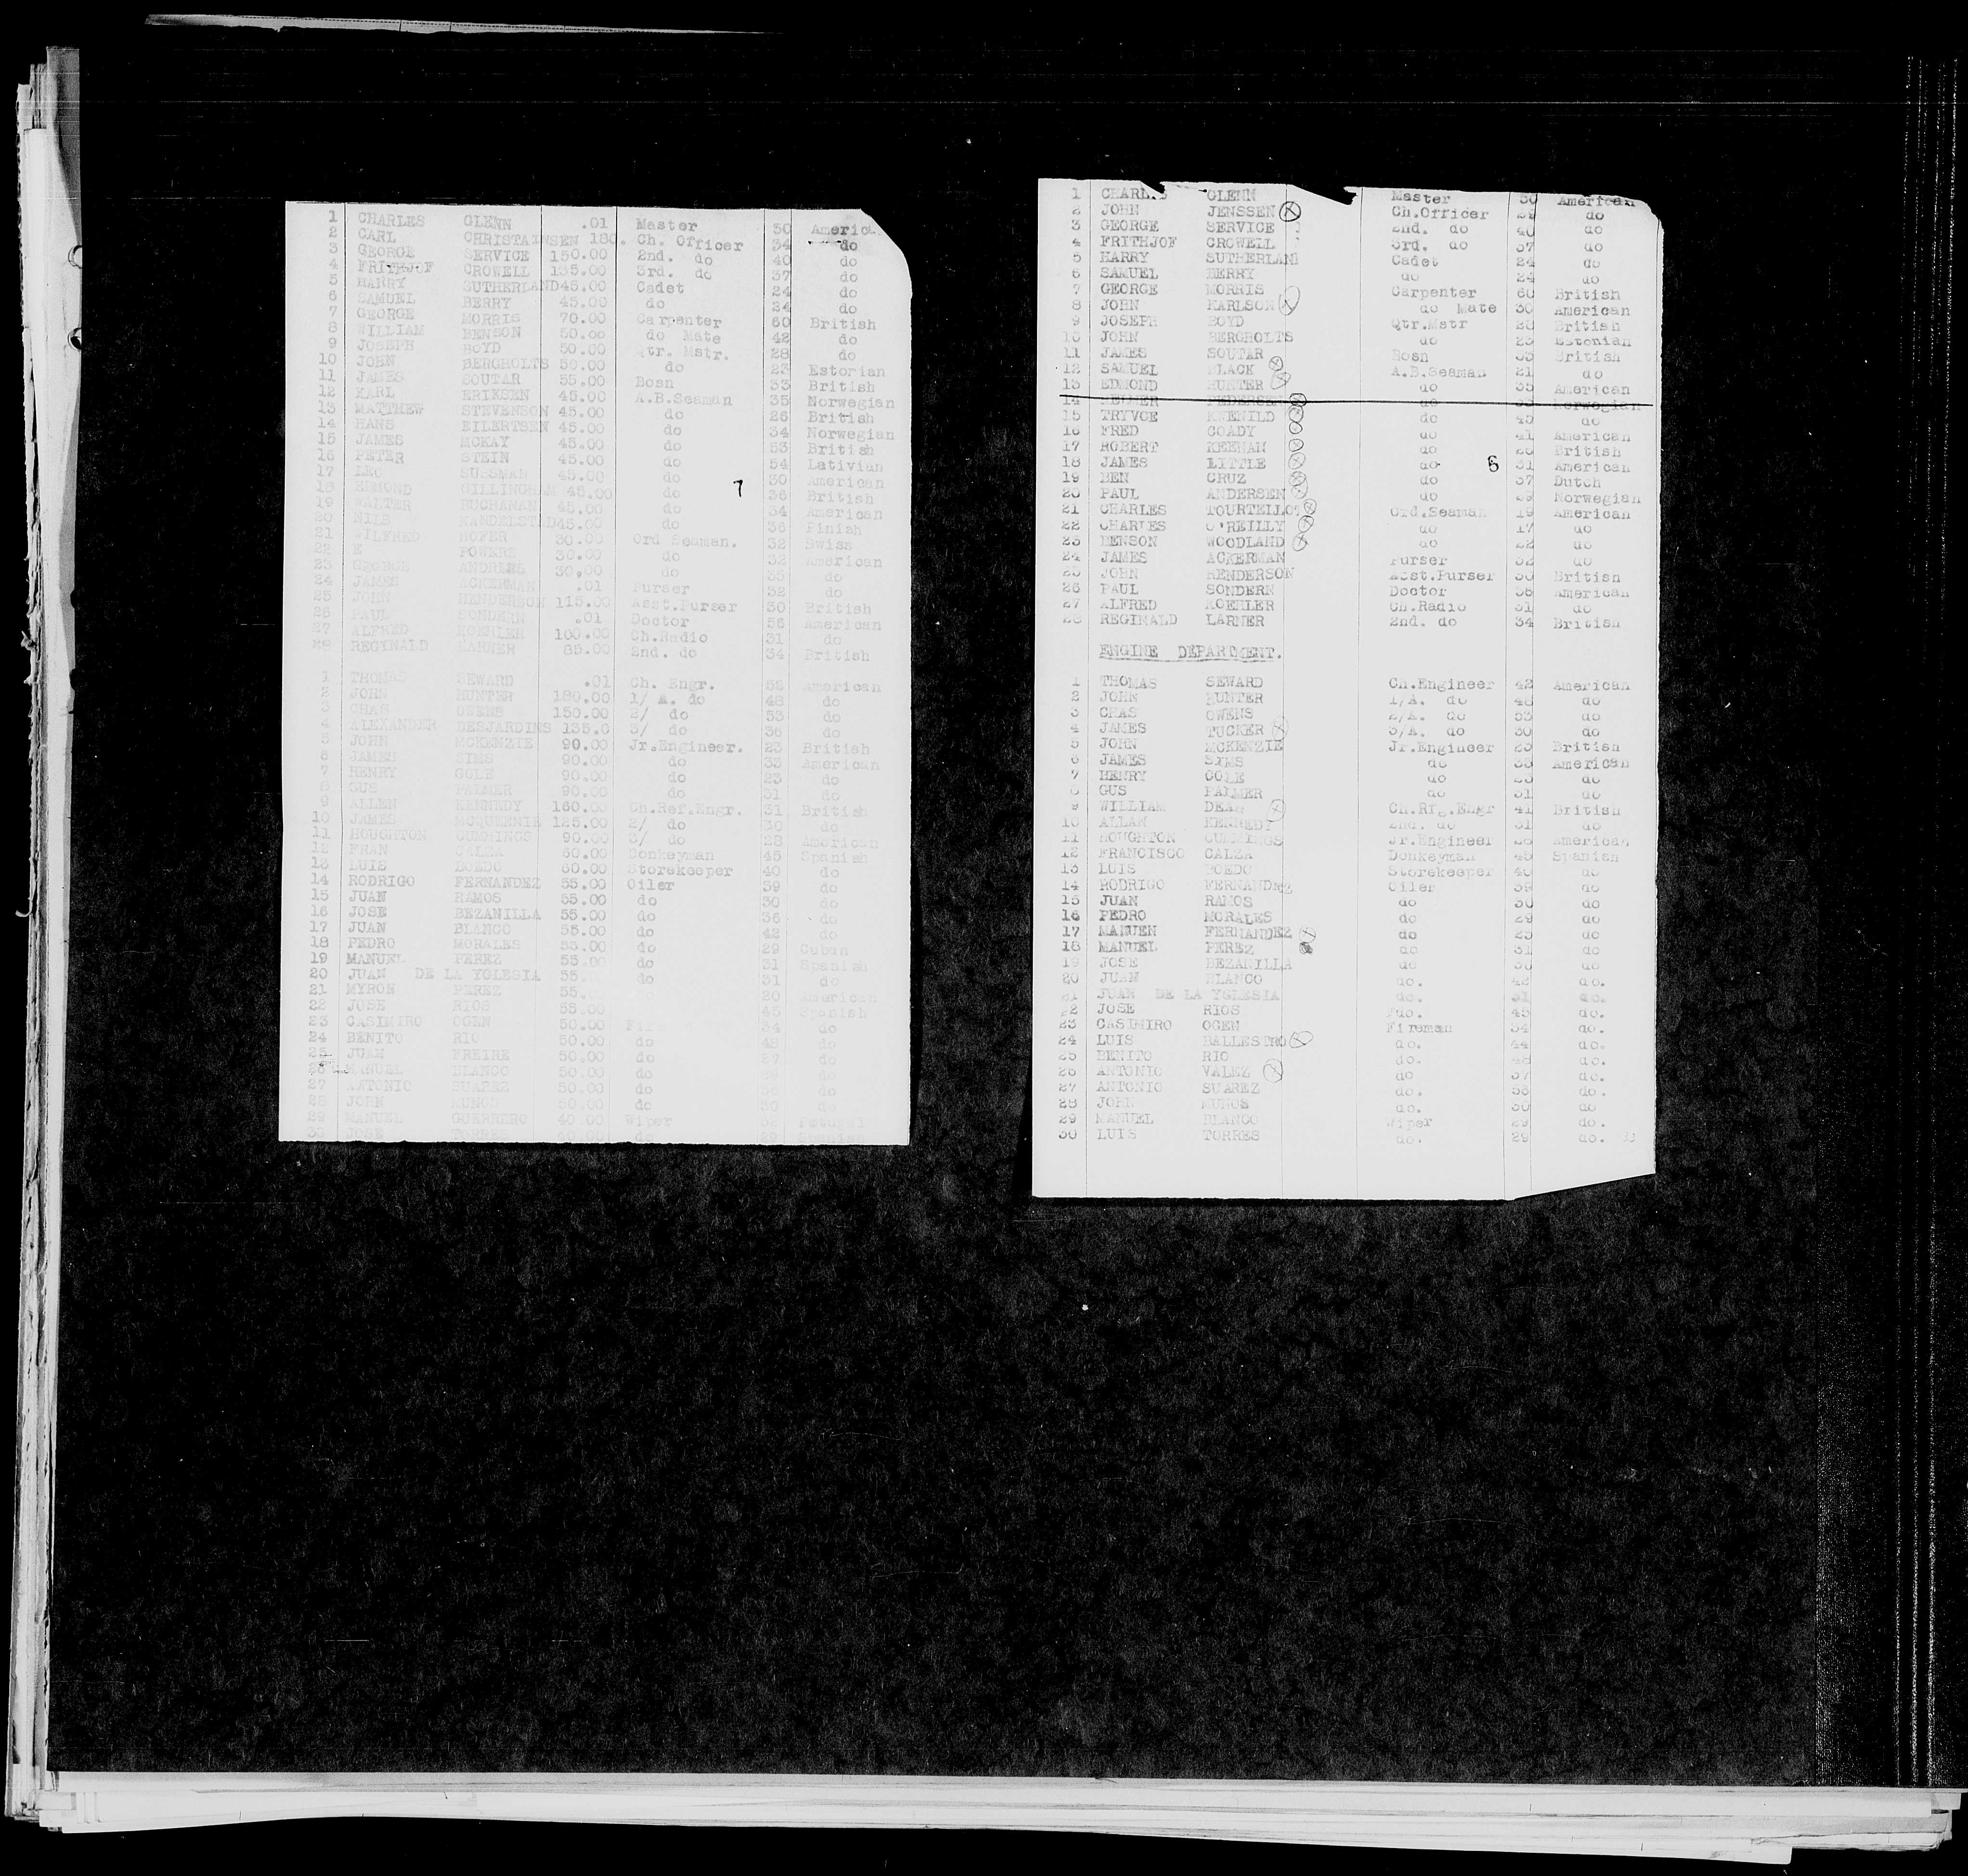 1 CHARLES GLENN .01 Master 50 Americ
2 CARL CHRISTAINSEN 180. Ch. Officer 34 do
3 GEORGE SERVICE 150.00 2nd. do 40 do
4 FRITHJOF CROWELL 135.00 3rd. do 37 do
5 HARRY SUTHERLAND 45.00 Cadet 24 do
6 SAMUEL BERRY 45.00 do 24 do
7 GEORGE MORRIS 70.00 Carpenter 60 British
8 WILLIAM BENSON 50.00 do Mate 42 do
9 JOSEPH BOYD 50.00 Qtr. Mstr. 28 do
10 JOHN BERGHOLTS 50.00 do 23 Estorian
11 JAMES SOUTAR 55.00 Bosn 53 British
12 KARL ERIKSEN 45.00 A.B.Seaman 35 Norwegian
13 MATTHEW STEVENSON 45.00 do 26 British
14 HANS EILERTSEN 45.00 do 34 Norwegian
15 JAMES MCKAY 45.00 do 53 British
16 PETER STEIN 45.00 do 54 Lativian
17 LEO SUSSMAN 45.00 do 30 American
18 EDMOND GILLINGHAM 45.00 do 7 36 British
19 WALTER BUCHANAN 45.00 do 34 American
20 NILS KANDELSTED 45.00 do 36 Finish
21 WILFRED HOFER 30.00 Ord Seaman. 32 Swiss
22 E POWERS 30.00 do 32 American
23 GEORGE ANDRESS 30,00 do 35 do
24 JAMES ACKERMAN .01 Purser 32 do
25 JOHN HENDERSON 115.00 Asst.Purser 30 British
26 PAUL SONDERN .01 Doctor 56 American
27 ALFRED KOEHLER 100.00 Ch.Radio 31 do
28 REGYNALD LARNER 85.00 2nd. do 34 British
1 THOMAS SEWARD .01 Ch. Engr. 52 American
2 JOHN HUNTER 180.00 1/ A. do 48 do
3 CHAS OWENS 150.00 2/ do 53 do
4 ALEXANDER DESJARDINS 135.0 3/ do 36 do
5 JOHN MCKENZIE 90.00 Jr.Engineer. 23 British
6 JAMES SIMS 90.00 do 33 American
7 HENRY GOLE 90.00 do 23 do
8 GUS PALMER 90.00 do 31 do
9 ALLEN KENNEDY 160.00 Ch.Ref.Engr. 31 British
10 JAMES MCQUEENIE 125.00 2/ do 30 do
11 HOUGHTON CUMMINGS 90.00 3/ do 28 American
12 FRAN CALZA 60.00 Donkeyman 45 Spanish
13 LUIS BOEDO 60.00 Storekeeper 40 do
14 RODRIGO FERNANDEZ 55.00 Oiler 39 do
15 JUAN RAMOS 55.00 do 30 do
16 JOSE BEZANILLA 55.00 do 36 do
17 JUAN BLANCO 55.00 do 42 do
18 PEDRO MORALES 55.00 do 29 Cuban
19 MANUEL PEREZ 55.00 do 31 Spanish
20 JUAN DE LA YGLESIA 55. do 31 do
21 MYRON PEREZ 55. 20 American
22 JOSE RIOS 55.00 45 Spanish
23 CASIMIRO OGEN 50.00 Fir 34 do
24 BENITO RIO 50.00 do 48 do
25 JUAN FREIRE 50.00 do do
26 MANUEL BLANCO 50.00 do do
27 ANTONIO SUAREZ 50.00 do do
28 JOHN MUNOS 50.00 do 30 do
29 MANUEL GUERRERO 40.00 Wiper 32 Potugal
1 CHARLES GLENN Master 50 American
2 JOHN JENSSEN Ch.Officer do
3 GEORGE SERVICE 2nd. do 40 do
4 FRITHJOF CROWELL 3rd. do 37 do
5 HARRY SUTHERLAN Cadet 24 do
6 SAMUEL BERRY do 24 do
7 GEORGE MORRIS Carpenter 60 British
8 JOHN KARLSON do Mate 30 American
9 JOSEPH BOYD Qtr.Mstr 28 British
10 JOHN BERGHOLTS do 23 Estonian
11 JAMES SOUTAR Bosn 53 British
12 SAMUEL BLACK A.B.Seaman 21 do
13 EDMOND HUNTER do 35 American
14 PEDERSEN do 33 Norwegian
15 TRYVGE KWENILD do 45 do
16 FRED COADY do 41 American
17 ROBERT KEENAN do 28 British
18 JAMES LITTLE do 6 31 American
19 BEN CRUZ do 37 Dutch
20 PAUL ANDERSEN do 39 Norwegian
21 CHARLES TOURTELLOT Ord.Seaman 19 American
22 CHARLES O'REILLY do 17 do
23 BENSON WOODLAND do 22 do
24 JAMES ACKERMAN Purser 32 do
25 JOHN HENDERSON Asst.Purser 30 British
26 PAUL SONDERN Doctor 56 American
27 ALFRED KOEHLER Ch.Radio 31 do
28 REGINALD LARNER 2nd. do 34 British
ENGINE DEPARTMENT.
1 THOMAS SEWARD Ch.Engineer 42 American
2 JOHN HUNTER 1/A. do 48 do
3 CHAS OWENS 2/A. do 53 do
4 JAMES TUCKER 3/A. do 30 do
5 JOHN MCKENZIE Jr.Engineer 23 British
6 JAMES SIMS do 33 American
7 HENRY GOLE do 23 do
8 GUS PALMER do 31 do
9 WILLIAM DEAS Ch.Rfg.Engr 41 British
10 ALLAN KENNEDY 2nd. do 31 do
11 HOUGHTON CUMMINGS Jr.Engineer 28 American
12 FRANCISCO CALZA Donkeyman 45 Spanish
13 LUIS BOEDO Storekeeper 40 do
14 RODRIGO FERNANDEZ Oiler 39 do
15 JUAN RAMOS do 30 do
16 PEDRO MORALES do 29 do
17 MANUEN FERNANDEZ do 23 do
18 MANUEL PEREZ do 31 do
19 JOSE BEZANILLA do 36 do
20 JUAN BLANCO do. 42 do.
21 JUAN DE LA YGLESIA do. 31 do.
22 JOSE RIOS do. 45 do.
23 CASIMIRO OGEN Fireman 34 do.
24 LUIS BALLESTRO do. 44 do.
25 BENITO RIO do. 48 do.
26 ANTONIO VALEZ do 37 do.
27 ANTONIO SUAREZ do. 38 do.
28 JOHN MUNOS do. 30 do
29 MANUEL BLANCO Wiper 29 do.
30 LUIS TORRES do. 29 do.